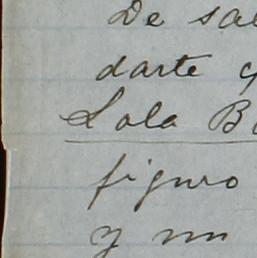 De sal
darte q
Lola B
figuro
y un